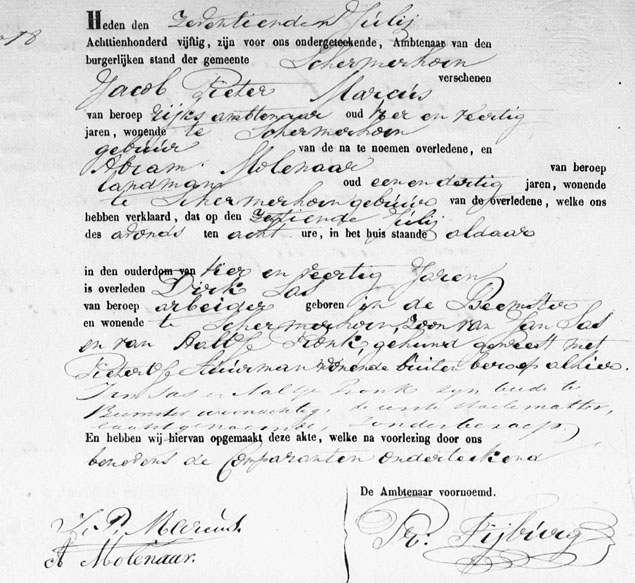 No 18
Heden den Zeventienden Julij
Achttienhonderd vijftig, zijn voor ons ondergeteekende, Ambtenaar van den
burgerlijken stand der gemeente Schermerhorn
verschenen
Jacob Pieter Marcus
van beroep rijks ambtenaar oud vier en veertig
jaren, wonende te Schermerhorn
gebuur van de na te noemen overledene, en
Abram Molenaar van beroep
landman oud een en dertig jaren, wonende
te Schermerhorn gebuur van de overledene, welke ons
hebben verklaard, dat op den Zestiende Julij
des avonds ten acht ure, in het huis staande aldaar
in den ouderdom van vier en veertig Jaren
is overleden Dirk Las
van beroep arbeider geboren in de Beemster
en wonende te Schermerhorn, Zoon van Jan Las
en van Aaltje Pronk, gehuwd geweest met
Pieterje Stuurman wonende buiten beroep alhier.
Jan Las en Aaltje Pronk zijn beide te
Beemster woonachtig, de eerste
laatstgenoemde, zonder beroep
En hebben wij hiervan opgemaakt deze akte, welke na voorlezing door ons
benevens de Comparanten onderteekend
De Ambtenaar voornoemd.
J. P. Marcus.
A Molenaar.